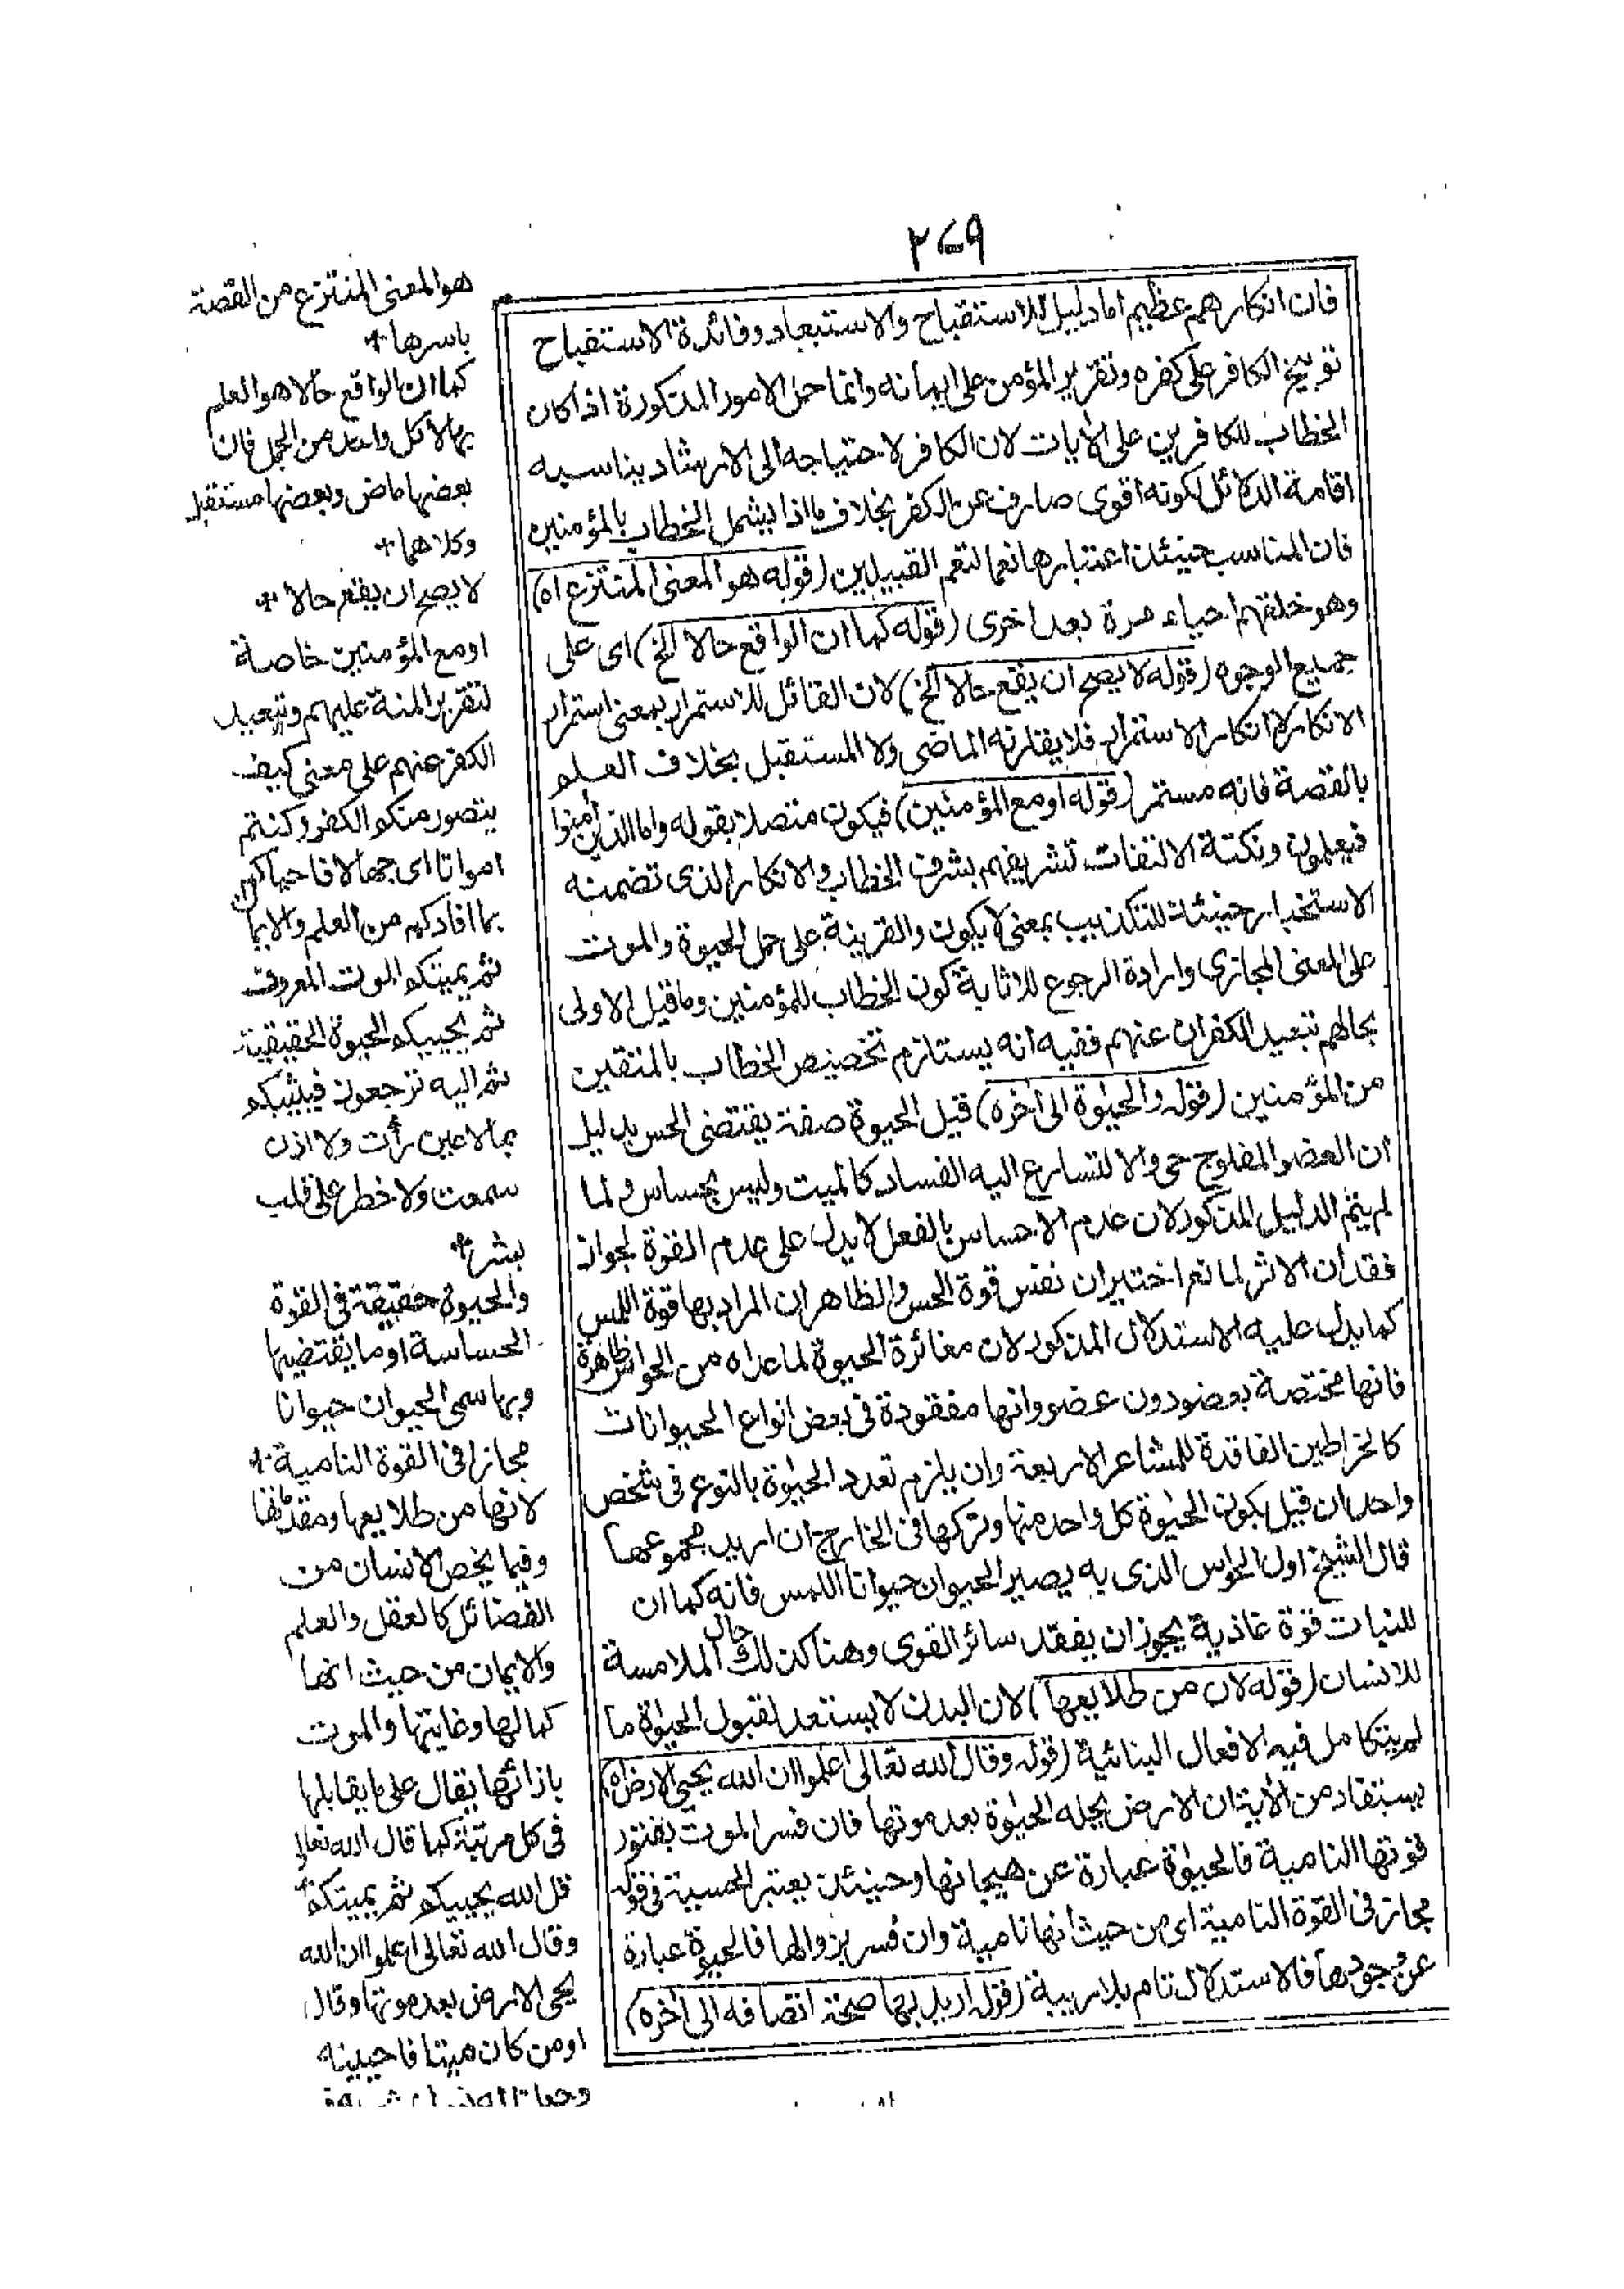 ٢٧٩
فان انكارهم عظيم اما دليل للاستقباح والاستبعاد وفائدة الاستقباح
توبيخ الكافر على كفره وتقرير المؤمن على ايمانه وانما حمل الامور المذكورة اذا كان
الخطاب للكافرين على الأيات لان الكافر لاحتياجه الى الارشاد يناسبه
اقامة الدلائل لكونه اقوى صارف عن الكفر بخلاف ما اذا يشمل الخطاب بالمؤمنين
فان المناسب حينئذ اعتبارها نعما لتعم القبيلين (قوله هو المعنى المنتزع اه)
وهو خلقهم احياء مرة بعد اخرى (قوله كما ان الواقع حالا الخ) اى على
جميع الوجوه (قوله لا يصح ان يقع حالا الخ) لان القائل للاستمرار بمعنى استمرار
الانكار لا انكار الاستمرار فلا يقارنه الماضى ولا المستقبل بخلاف العلم
بالقصة فانه مستمر (قوله او مع المؤمنين) فيكون متصلا بقوله واما الذين أمنوا
فيعلمون ونكتة الالتفات تشريفهم بشرف الخطاب والانكار الذى تضمنه
الاستخبار حينئذ للتكذيب بمعنى لا يكون والقرينة على حمل الحيوة والموت
على المعنى المجازى وارادة الرجوع للاثابة كون الخطاب للمؤمنين وما قيل الاولى
بحالهم تبعيد الكفران عنهم ففيه انه يستلزم تخصيص الخطاب بالمتقين
من المؤمنين (قوله والحيوة الى أخره) قيل الحيوة صفة يقتضى الحس بدليل
ان العضو المفلوج حى والا لتسارع اليه الفساد كالميت وليس بحساس ولما
لم يتم الدليل المذكور لان عدم الاحساس بالفعل لا يدل على عدم القوة لجواز
فقدان الاثر لمانع اختير ان نفس قوة الحس والظاهر ان المراد بها قوة اللمس
كما يدل عليه الاستدلال المذكور لان مغائرة الحيوة لما عداه من الحواس ظاهرة
فانها مختصة بعضو دون عضو وانها مفقودة فى بعض انواع الحيوانات
كالخراطين الفاقدة للمشاعر الاربعة وان يلزم تعدد الحيوة بالنوع فى شخص
واحد ان قيل بكون الحيوة كل واحد منها وتركها فى الخارج ان اريد مجموعها
قال الشيخ اول الحواس الذى به يصير الحيوان حيوانا اللمس فانه كما ان
للنبات قوة غاذية يجوز ان يفقد سائر القوى وهنا كذلك حال الملامسة
للانسان (قوله لان من طلايعها) لان البدن لا يستعد لقبول الحيوة ما
لم يتكامل فيه الافعال البنائية (قوله وقال الله تعالى اعلموا ان الله يحيى الارض اه)
يستفاد من الأية ان الارض يحله الحيوة بعد موتها فان فسر الموت بفتور
قوتها النامية فالحيوة عبارة عن هيجانها وحينئذ يعتبر الحسية فى قوله
مجاز فى القوة النامية اى من حيث انها نامية وان فسر بزوالها فالحيوة عبارة
عن وجودها فالاستدلال تام بلا ريبة (قوله اريد بها صحة اتصافه الى أخره)
هو المعنى المنتزع من القصة
باسرها +
كما ان الواقع حالا هو العلم
بها لا كل واحد من الجمل فان
بعضها ماض وبعضها مستقبل
وكلاهما +
لا يصح ان يقع حالا +
او مع المؤمنين خاصة
لتقرير المنة عليهم وتبعيد
الكفر عنهم على معنى كيف
يتصور منكم الكفر وكنتم
امواتا اى جهالا فاحياكم
بما افادكم من العلم والايمان
ثم يميتكم الموت المعروف
ثم يحييكم الحيوة الحقيقية
ثم اليه ترجعون فيثيبكم
بما لا عين رأت ولا اذن
سمعت ولا خطر على قلب
بشر +
والحيوة حقيقة فى القوة
الحساسة او ما يقتضيها
وبها سمى الحيوان حيوانا
مجاز فى القوة النامية +
لانها من طلايعها ومقدماتها
وفيما يخص الانسان من
الفضائل كالعقل والعلم
والايمان من حيث انها
كمالها وغايتها والموت
بازائها يقال على ما يقابلها
فى كل مرتبة كما قال الله تعالى
قل الله يحييكم ثم يميتكم
وقال الله تعالى اعلموا ان الله
يحيى الارض بعد موتها وقال
او من كان ميتا فاحيينه